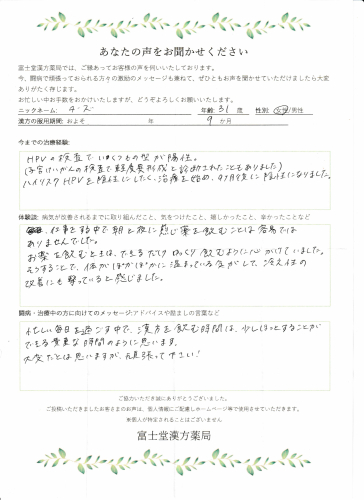 あなたの声をお聞かせください
富士堂漢方薬局では、ご縁あってお客様の声を伺いいたしております。
今、闘病で頑張っておられる方々の激励のメッセージも兼ねて、ぜひともお声を聞かせていただけましたら大変
ありがたく存じます。
お忙しい中お手数をおかけいたしますが、どうぞよろしくお願いいたします。
ニックネーム: 年齢: 31 歳 性別: 女性/男性
漢方の服用期間: およそ 年 9 ヶ月
今までの治療経験:
HPVの検査でいくつもの型が陽性。
(子宮けいがんの検査で軽度異形成と診断されたこともありました)
ハイリスクHPVを陰性にしたく、治療を始め、9ヶ月後に陰性になりました。
体験談: 病気が改善されるまでに取り組んだこと、気をつけたこと、嬉しかったこと、辛かったことなど
仕事をする中で朝と夜に煎じ薬を飲むことは容易では
ありませんでした。
お薬を飲むときは、できるだけゆっくり飲むように心がけていました。
そうすることで、体がぽかぽかに温まっている気がして、冷え性の
改善にも繋っていると感じました。
闘病・治療中の方に向けてのメッセージ:アドバイスや励ましの言葉など
忙しい毎日を過ごす中で、漢方を飲む時間は、少しほっとすることが
できる貴重な時間のように思います。
大変だとは思いますが、頑張って下さい!
ご協力いただき誠にありがとうございました。
ご投稿いただきましたお客さまのお声は、個人情報にご配慮しホームページ等で使用させていただきます。
※個人が特定されることはございません
富士堂漢方薬局